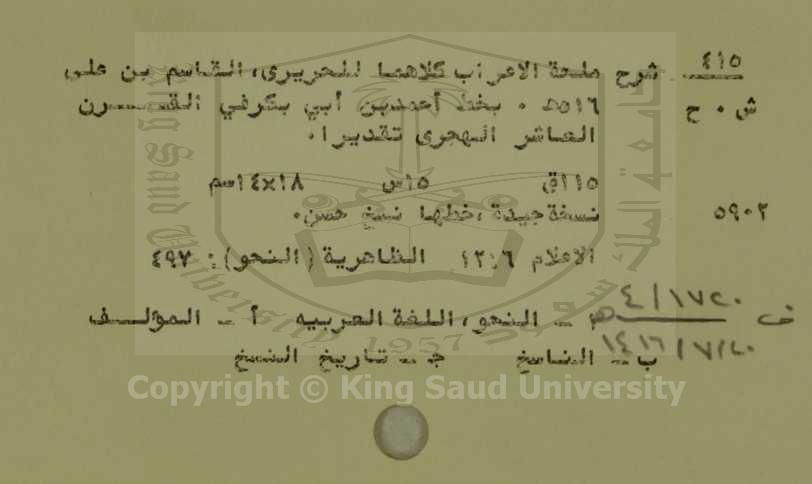 ٤١٥ شرح ملحة الاعراب كلاهما للحريرى، القاسم بن على
ش ٠ ح ٥١٦ھ ٠ بخط أحمدبن أبي بكرفي القــرن
العاشر الهجرى تقديرا٠
١١٥ق ١٥س ١٨×١٤سم
٥٩٠٢ نسخة جيدة ،خطها نسخ حسن٠
الاعلام ١٢:٦ الظاهرية (النحو): ٤٩٧
ف ١٧٢٠/٤ ـ النحو، اللغة العربيه أ ـ المؤلــف
١٤١٦/٧/٢٠ ب ـ الناسخ ج ـ تاريخ النسخ
King Saud University
1957
Copyright © King Saud University